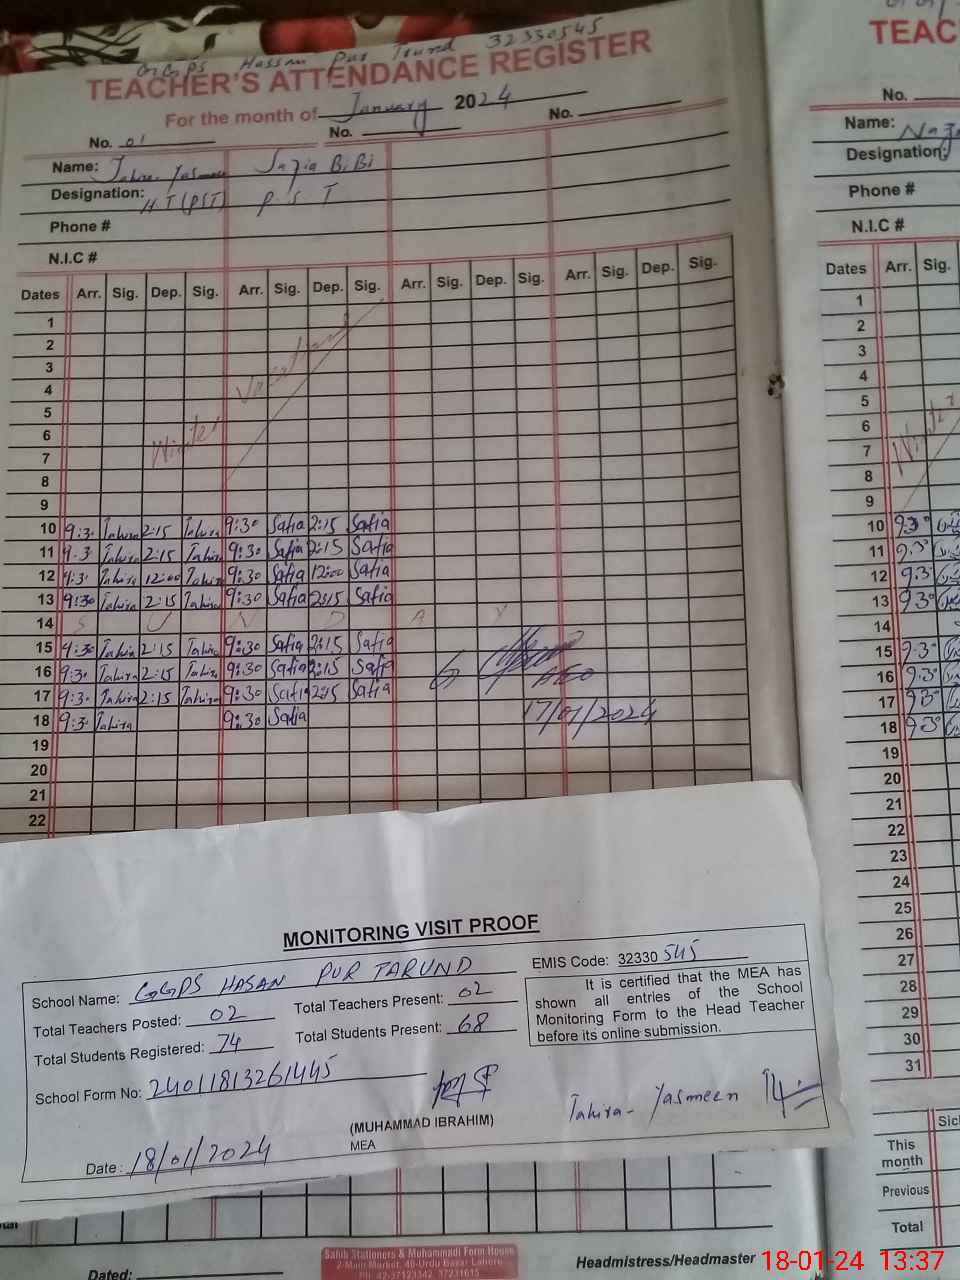 GGPS Hassan Pur Trund 32330545
TEACHER'S ATTENDANCE REGISTER
For the month of January 2024
No. 01 No. No.
Name: Tahira Yasmeen Safia BiBi
Designation: H.T(PST) P S T
Phone #
N.I.C #
Dates Arr. Sig. Dep. Sig. Arr. Sig. Dep. Sig. Arr. Sig. Dep. Sig. Arr. Sig. Dep. Sig.
1
2
3
4
5
6
7
8
Winter Vacations
9
10 9:30 Tahira 2:15 Tahira 9:30 Safia 2:15 Safia
11 9:30 Tahira 2:15 Tahira 9:30 Safia 2:15 Safia
12 9:30 Tahira 12:00 Tahira 9:30 Safia 12:00 Safia
13 9:30 Tahira 2:15 Tahira 9:30 Safia 2:15 Safia
14 S U N D A Y
15 9:30 Tahira 2:15 Tahira 9:30 Safia 2:15 Safia
16 9:30 Tahira 2:15 Tahira 9:30 Safia 2:15 Safia
AEO
17 9:30 Tahira 2:15 Tahira 9:30 Safia 2:15 Safia
17/01/2024
18 9:30 Tahira 9:30 Safia
19
20
21
22
MONITORING VISIT PROOF
School Name: GGPS HASAN PUR TARUND
EMIS Code: 32330 545
Total Teachers Posted: 02 Total Teachers Present: 02
Total Students Registered: 74 Total Students Present: 68
It is certified that the MEA has
shown all entries of the School
Monitoring Form to the Head Teacher
before its online submission.
School Form No: 24011813261445
(MUHAMMAD IBRAHIM)
MEA
Tahira- Yasmeen
Date: 18/01/2024
Sahib Stationers & Muhammadi Form House
2-Main Market, 40-Urdu Bazar Lahore
PH: 42-37123342, 37231615
Dated:
Headmistress/Headmaster
TEAC
No.
Name:
Designation:
Phone #
N.I.C #
Dates Arr. Sig.
1
2
3
4
5
6
7
8
Winter
9
10 9:30
11 9:30
12 9:30
13 9:30
14
15 9:30
16 9:30
17 9:30
18 9:30
19
20
21
22
23
24
25
26
27
28
29
30
31
This
month
Previous
Total
18-01-24 13:37